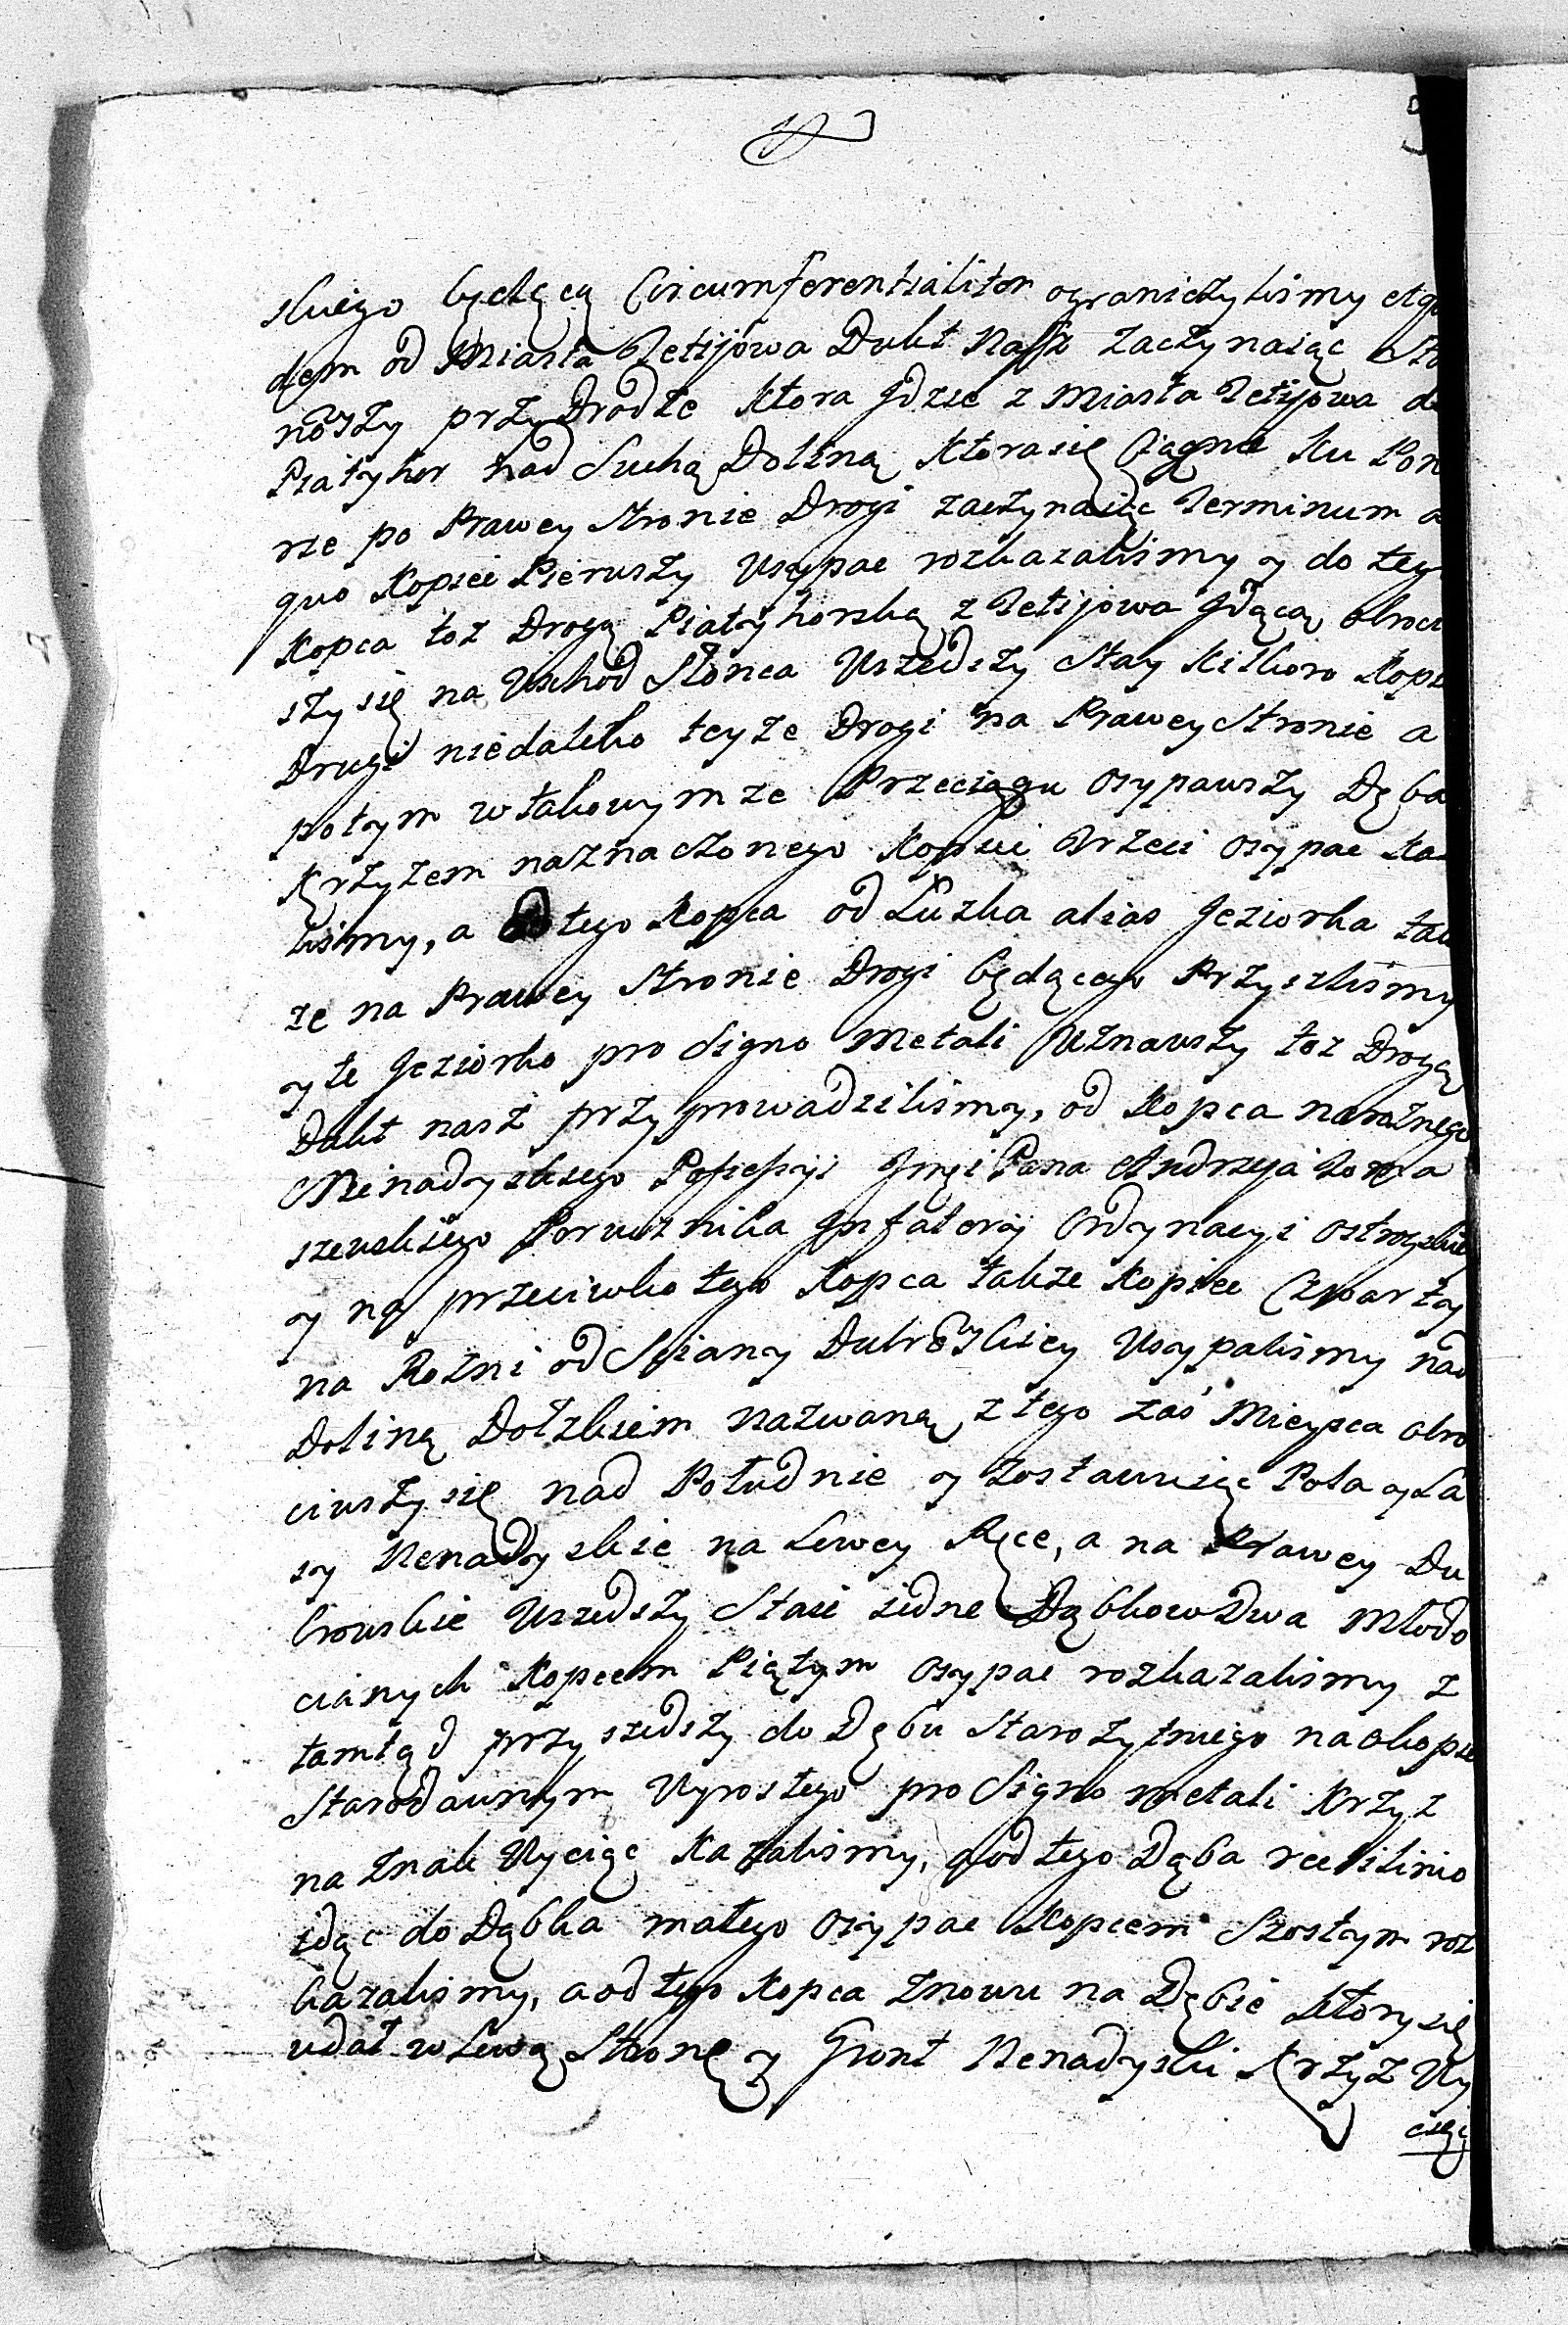 skiego będącą Circumferentialiter ograniczylismy
dem od Miasta Tetijowa Dukt Nasz zaczynaiąc
przy Drodze Ktora Jdzie z Miasta Tetijowa d
Piatyhor nad Suchą Doliną Ktora się Ciągnie Ku
rze po Prawey Stronie Drogi zaczynaiąc Terminum a
quo Kopiec Pierwszy Usypac rozkazalismy y do teg
Kopca toz Drogą Piatyhorską z Tetijowa Jdącą obroci
szy się na Wschod Słonca Uszedszy Stay Kilkoro Kopi
Drugi niedaleko teyze Drogi na Prawey Stronie a
potym w takowymze Przeciągu osypawszy Dęba
Krzyzem naznaczonego Kopiec Trzeci osypac Kaz
lismy, a do tego Kopca od Łuzka alias Jeziorka tak
ze na Prawey Stronie Drogi będącego Przyszlismy
y te Jeziorko pro Signo Metali Uznawszy toz Drogą
Dukt nasz przyprowadzilismy, od Kopca naroznego
Nienadyskiego Possessyi Jmci Pana Andrzeja Toma
szewskiego Porucznika Jnfateryi Ordynacyi Ostrogskiey
y na przeciwko tego Kopca takze Kopiec Czwarty
na Rozni od Sciany Dubrowskiey Usypalismy nad
Doliną Dołzkiem nazwaną, z tego zaś Mieysca obro
ciwszy się nad Południe y zostawuiąc Pola y La
sy Nenadyskie na Lewey Ręce, a na Prawey Du
browskie Uszedszy Staie iedne Dąbkow Dwa Młodo
cianych Kopcem Piątym osypac rozkazalismy z
tamtąd przyszedszy do Dębu Starozytnego na okopie
Starodawnym Wyrosłego pro Signo metali Krzyz
na znak Wyciąc Kazalismy, a od tego Dęba recti linio
idąc do Dąbka małego osypac Kopcem Szostym roz
kazalismy, a od tego Kopca znowu na Dębie Ktory się
udał w Lewą Stronę y Gront Nenadyski Krzyz Wy
cięci